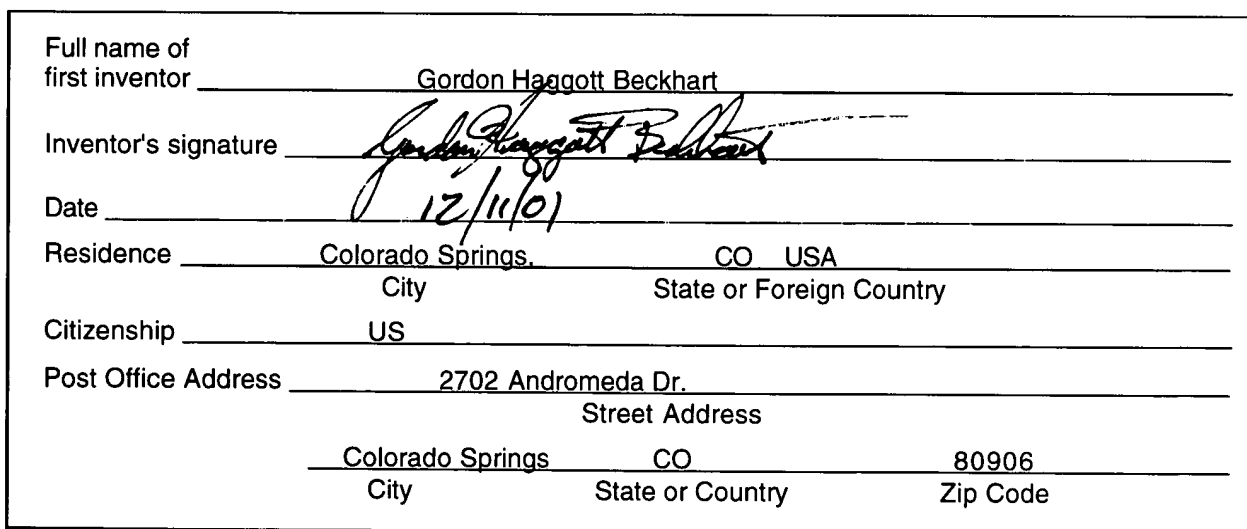 Full name of
first inventor Gordon Haggott Beckhart
Inventor's signature Gordon Haggott Beckhart
Date 12/11/01
Residence Colorado Springs. CO USA
City State or Foreign Country
Citizenship US
Post Office Address 2702 Andromeda Dr.
Street Address
Colorado Springs CO 80906
City State or Country Zip Code